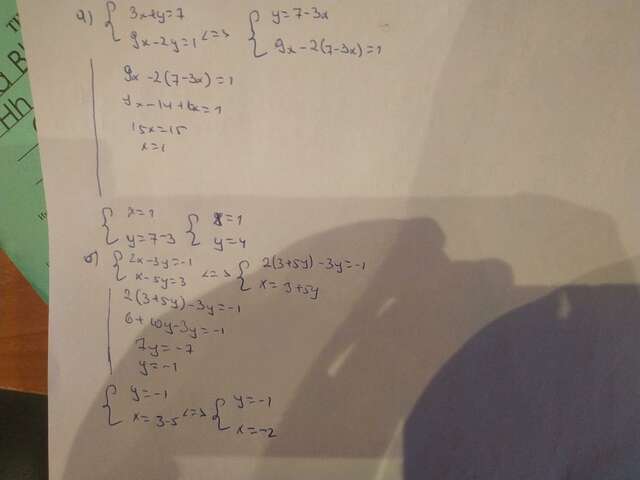 а) { 3x+y=7
9x-2y=1 <=> { y=7-3x
9x-2(7-3x)=1
9x-2(7-3x)=1
9x-14+6x=1
15x=15
x=1
{ x=1
y=7-3 { x=1
y=4
б) { 2x-3y=-1
x-5y=3 <=> { 2(3+5y)-3y=-1
x=3+5y
2(3+5y)-3y=-1
6+10y-3y=-1
7y=-7
y=-1
{ y=-1
x=3-5 <=> { y=-1
x=-2